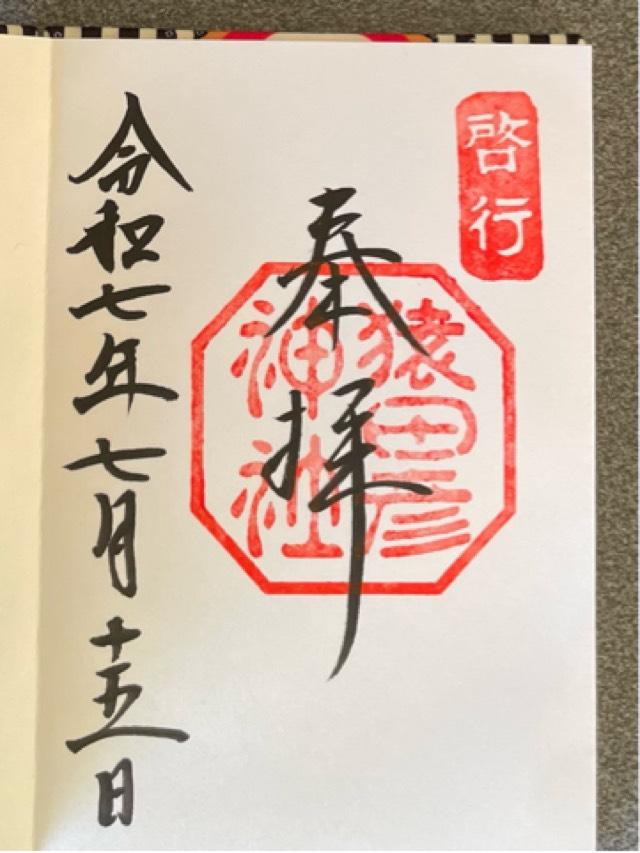 啓行
奉拝
猿田彦
神社
令和七年七月十五日